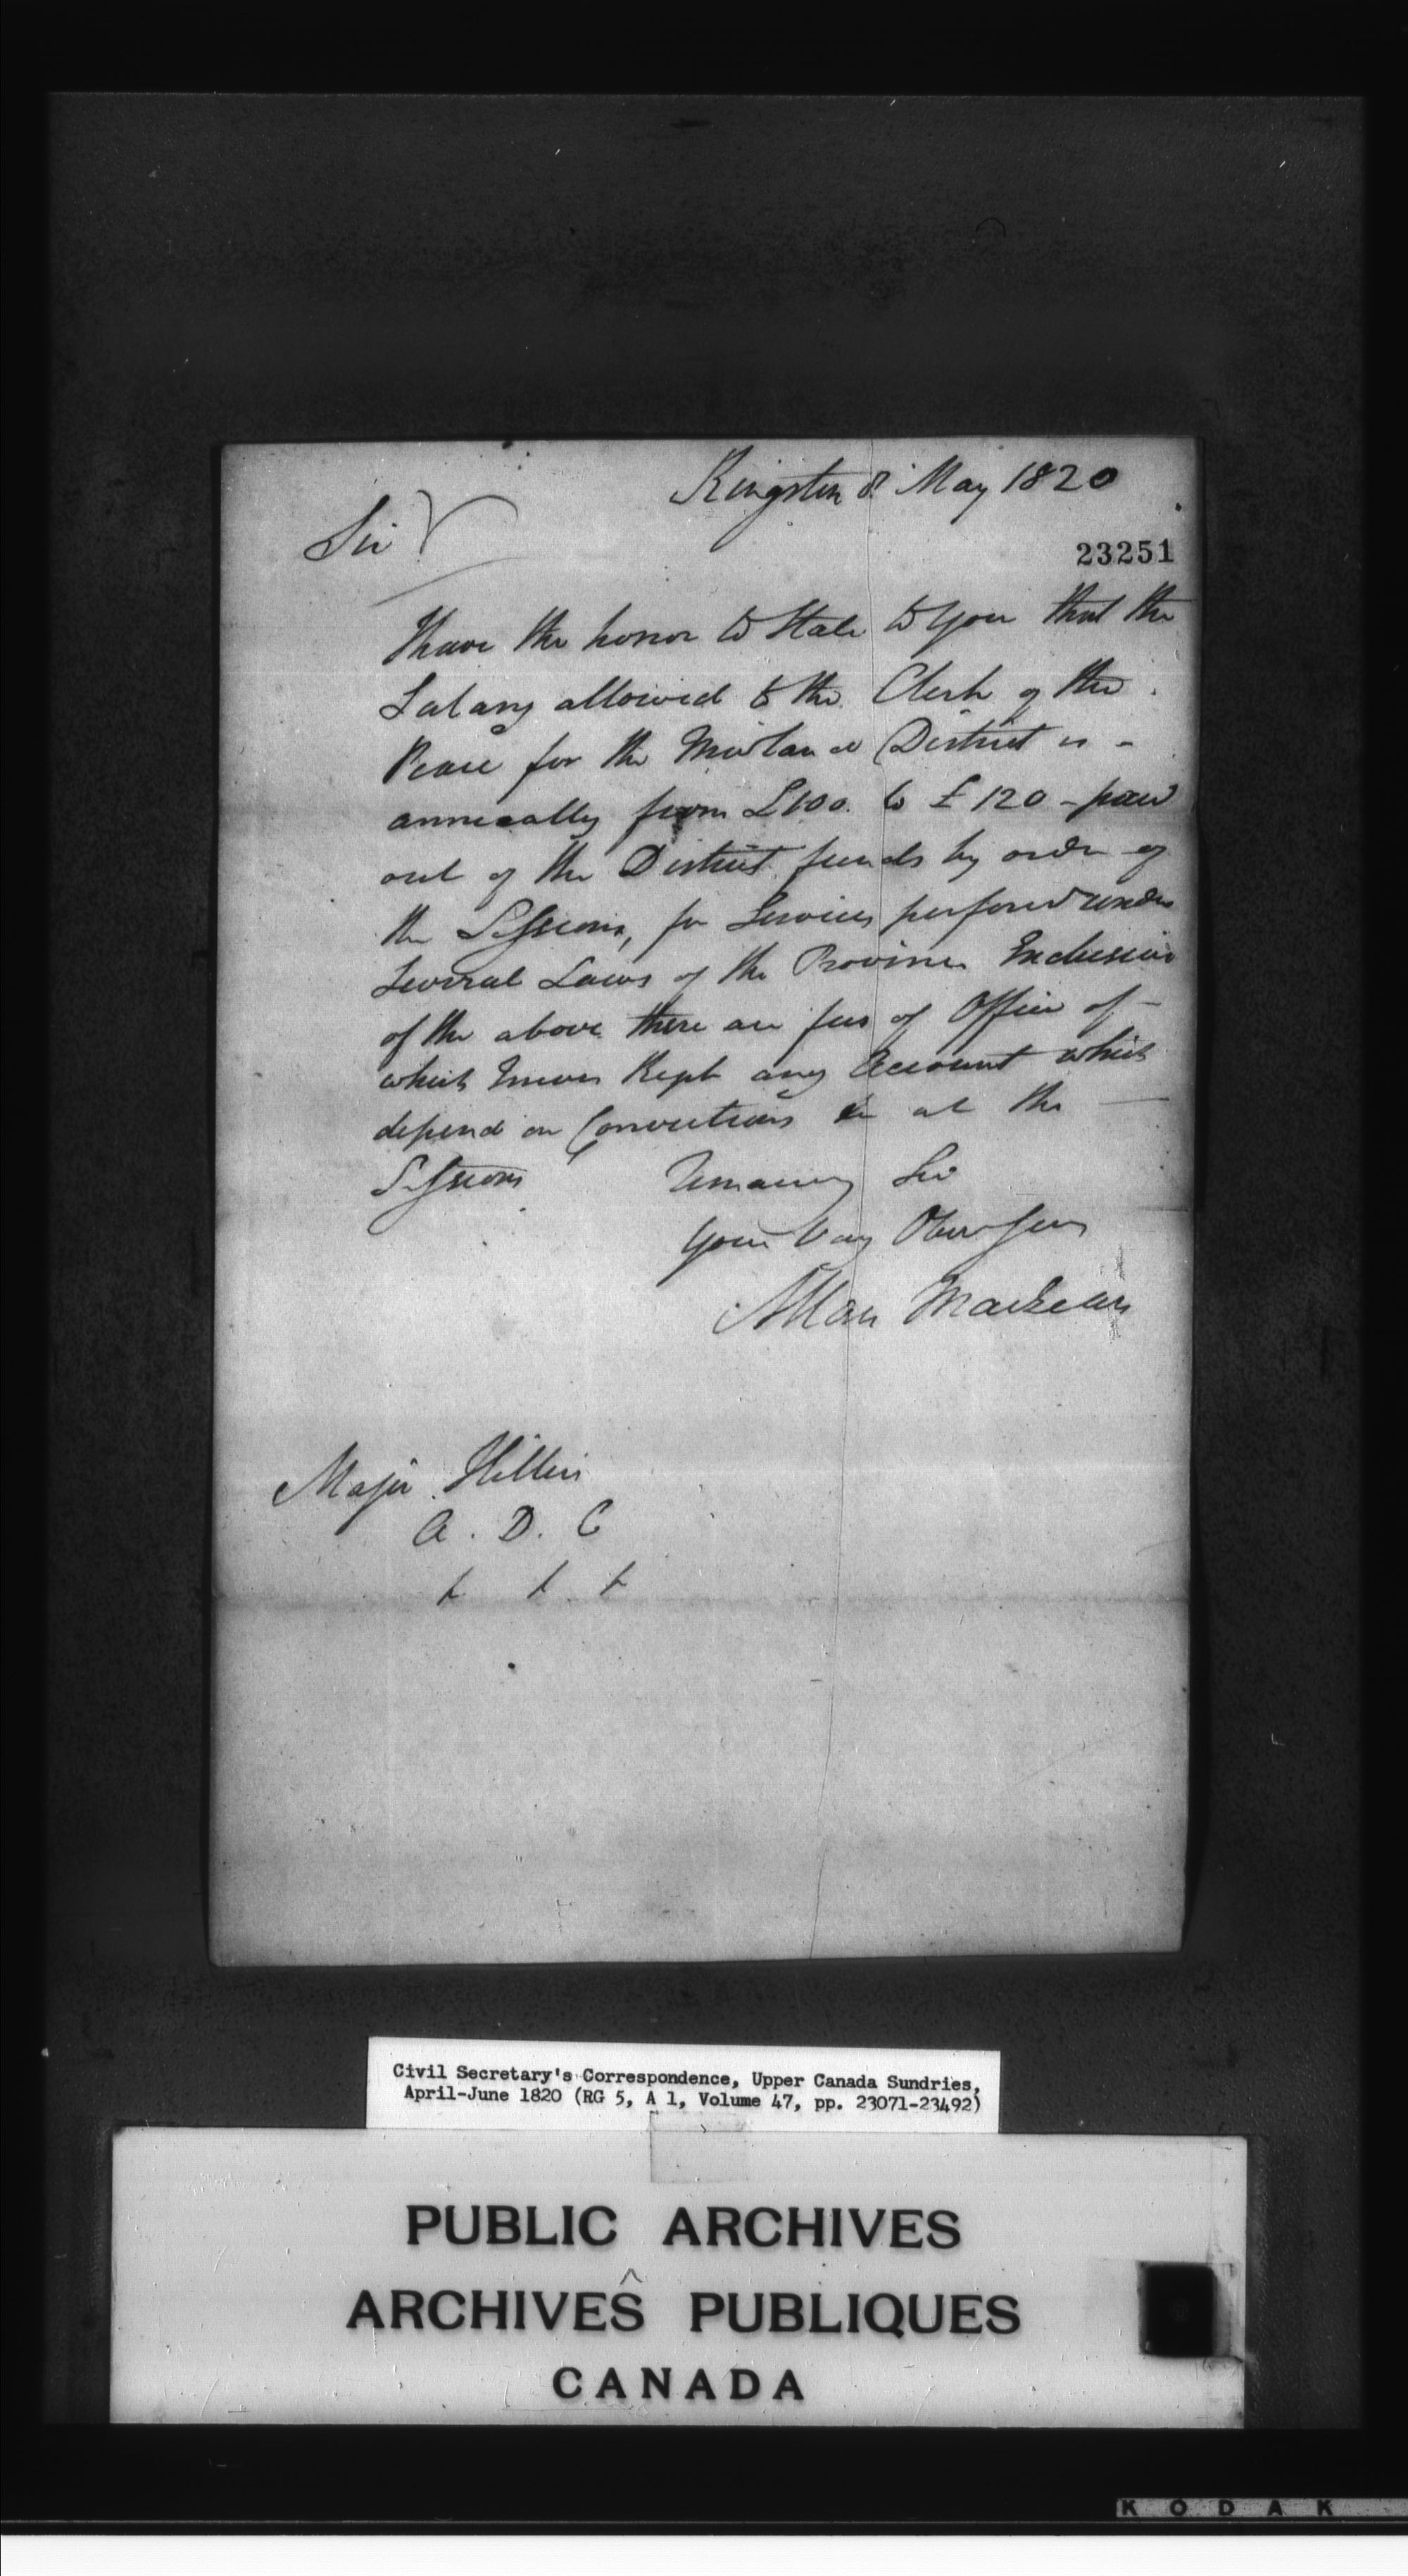 Kingston 8 May 1820
Sir
23251
I have the honor to State to you that the
Salary allowed to the Clerk of the
Peace for the Midland District is -
annually from £100. to £120 - paid
out of the District funds by order of
the Sessions, for Services perfored under
Several Laws of the Province Exclusive
of the above there are fees of Office of -
which I never Kept any Account which
depend on Convictions &c at the -
Sessions I remain Sir
Your Very Obed Serv
Allan MacLean
Major Hillier
A. D. C
& & &
Civil Secretary's Correspondence, Upper Canada Sundries,
April-June 1820 (RG 5, A 1, Volume 47, pp. 23071-23492)
PUBLIC ARCHIVES
ARCHIVES PUBLIQUES
CANADA
KODAK